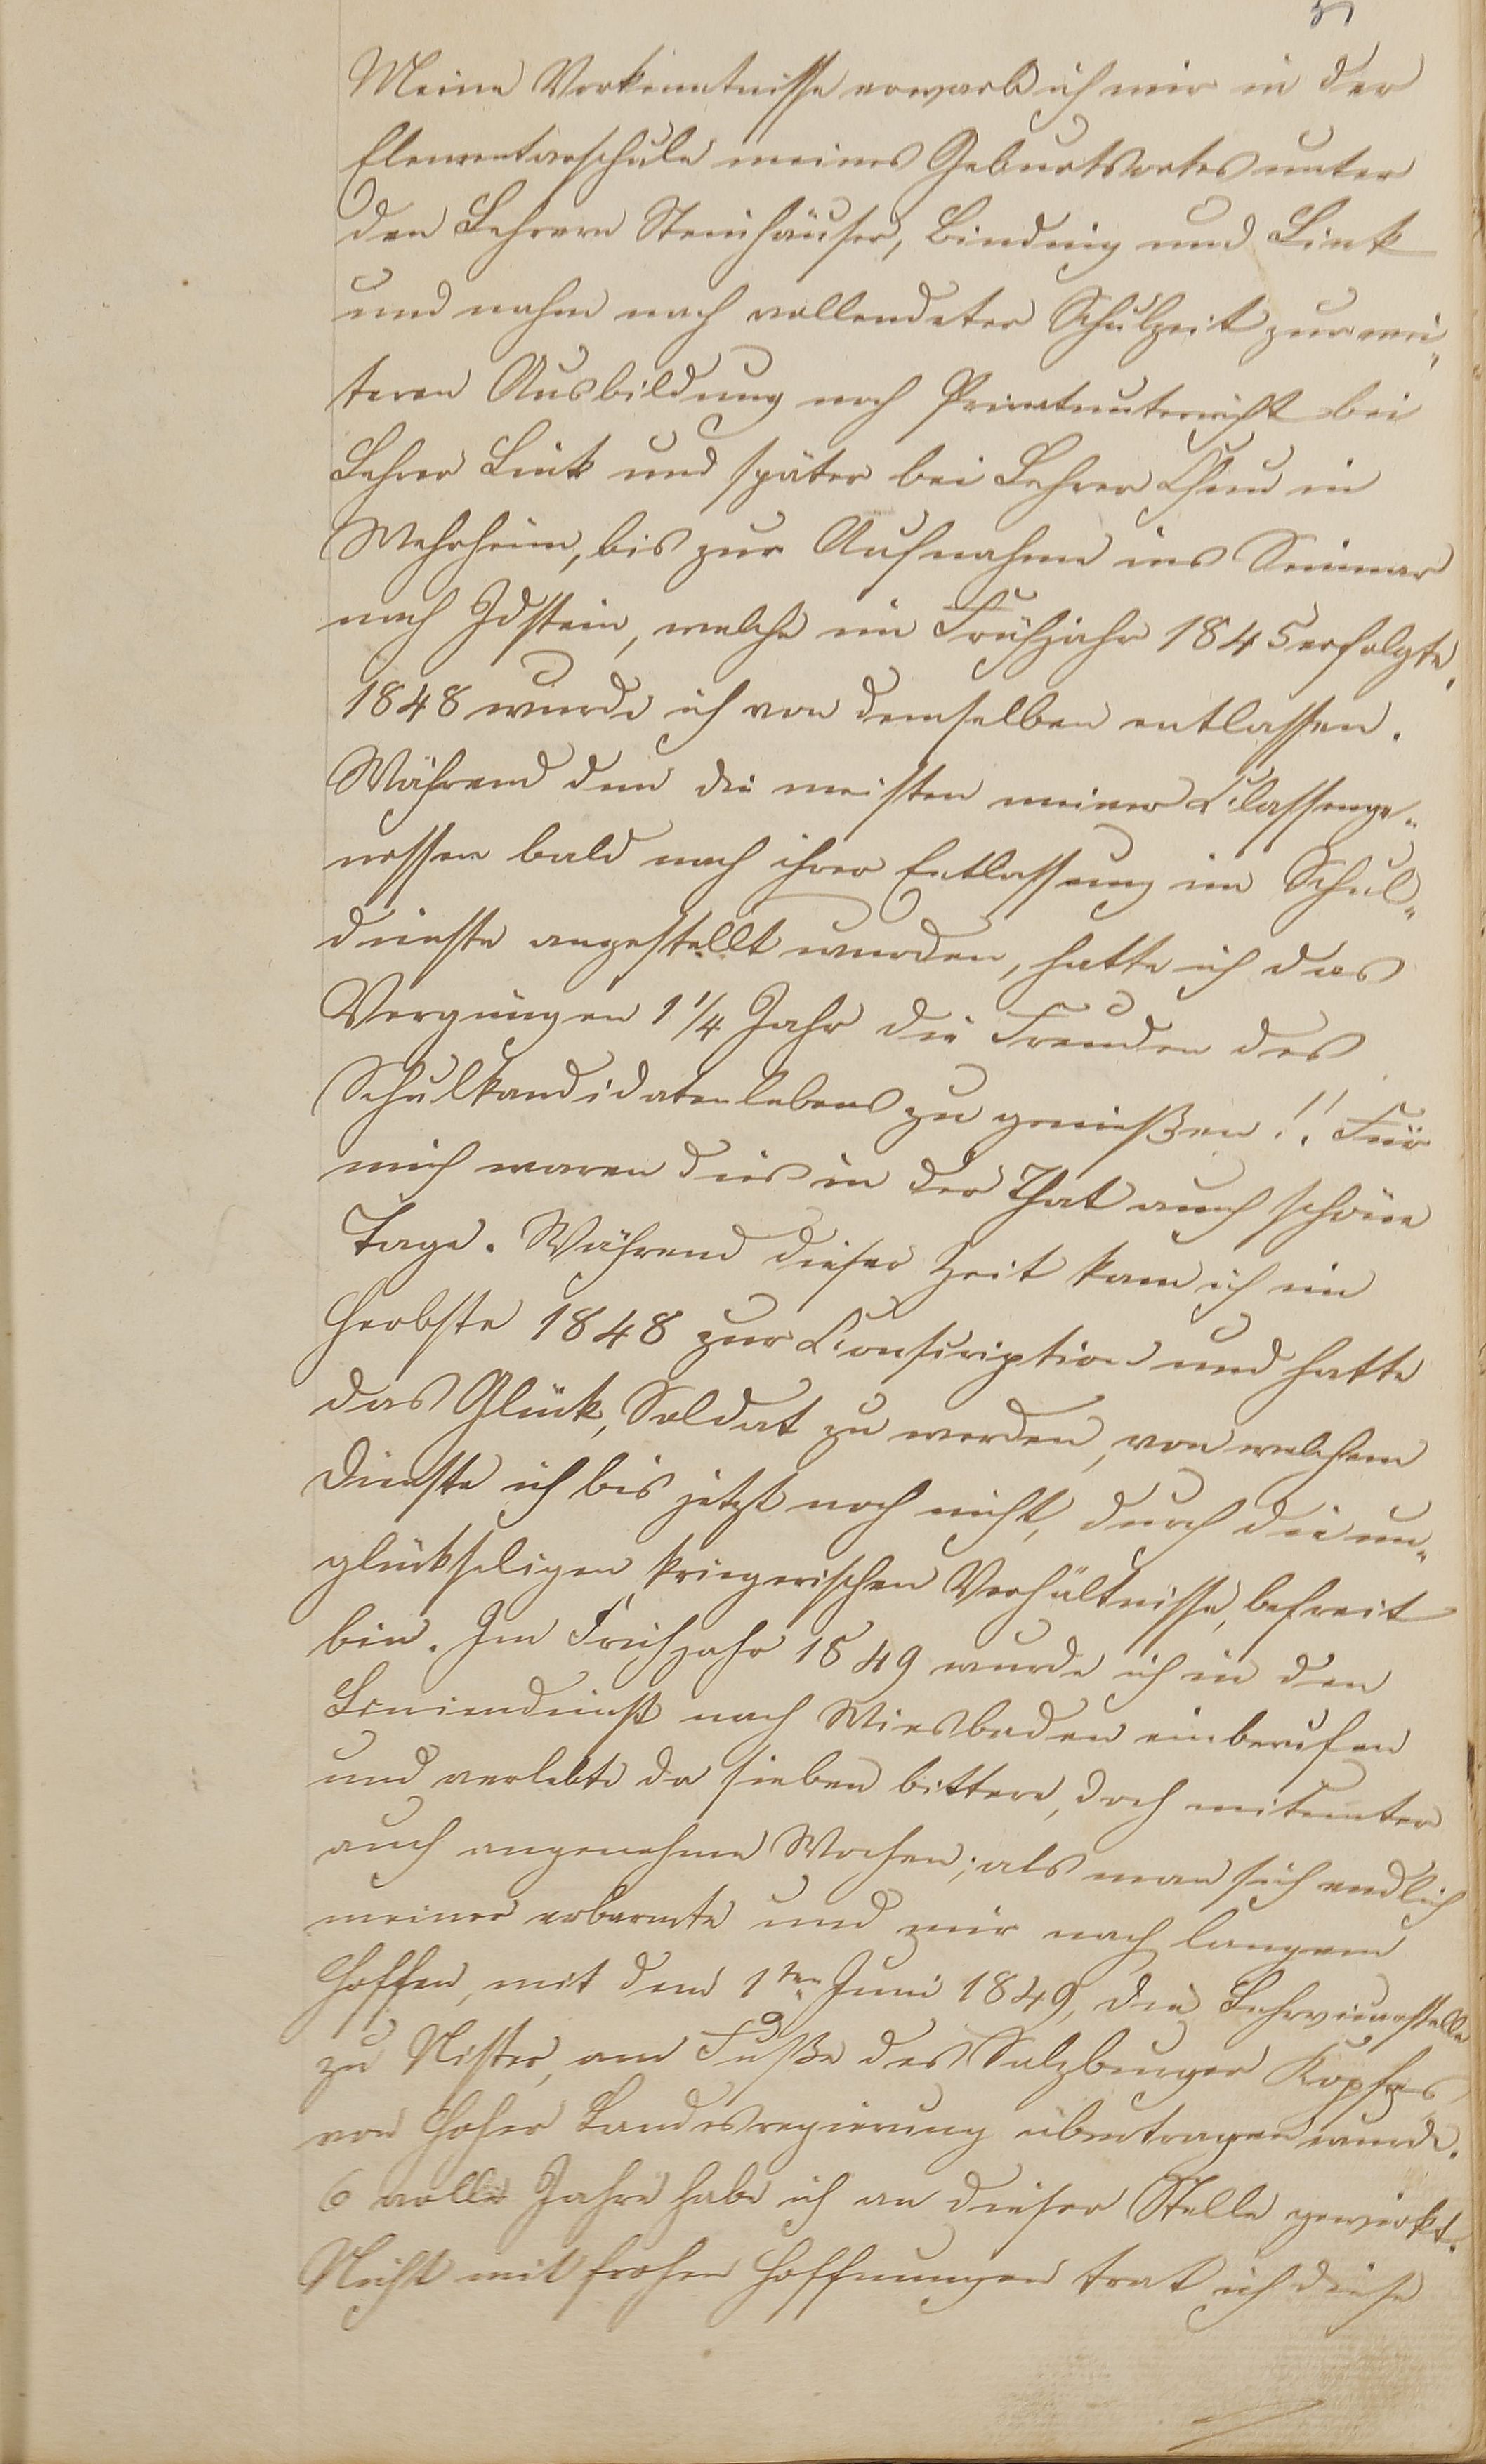 Meine Vorkenntnisse erwarb ich mir in der
Elementarschule meines Geburtsortes unter
den Lehrern Steinhäuser, Bindnig und Link
und nahm nach vollendeter Schulzeit zur wei„
teren Ausbildung noch Privatunterricht bei
Lehrer Link und später bei Lehrer in
Wehrheim, bis zur Aufnahme ins Seminar
nach Idstein, welche im Frühjahr 1845 erfolgte.
1848 wurde ich von demselben entlassen.
Während dem die meisten meiner Classenge„
nossen bald nach ihrer Entlassung im Schul„
dienste angestellt wurden, hatte ich das
Vergnügen 1 1/4 Jahr die Freuden des
Schulkandidatenlebens zu genießen!! Für
mich waren dies in der That auch schöne
Tage. Während dieser Zeit kam ich im
Herbste 1848 zur Conscription und hatte
das Glück, Soldat zu werden, von welchem
Dienste ich bis jetzt noch nicht, durch die un„
glückseligen kriegerischen Verhältnisse, befreit
bin. Im Frühjahr 1849 wurde ich in den
Liniendienst nach Wiesbaden einberufen
und verlebte da sieben bittere, doch mitunter
auch angenehme Wochen; als man sich endlich
meiner erbarmte und mir nach langem
Hoffen, mit dem 1ten Juni 1849, die Lehrvicarstelle
zu Nister, am Fuße des Salzburger Kopfes
von Hoher Landesregierung übertragen wurde.
6 volle Jahre habe ich an dieser Stelle gewirkt.
Nicht mit frohen Hoffnungen trat ich diese